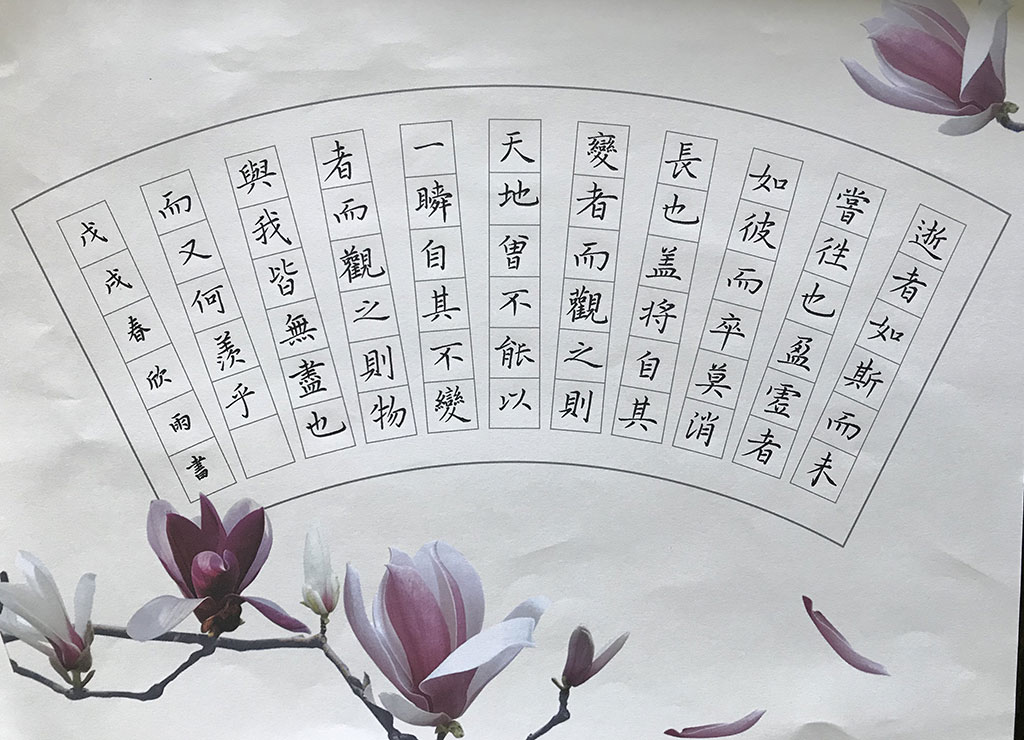 逝者如斯而未
嘗往也盈虛者
如彼而卒莫消
長也盖將自其
變者而觀之則
天地曾不能以
一瞬自其不變
者而觀之則物
與我皆無盡也
而又何羨乎
戊戌春欣雨書